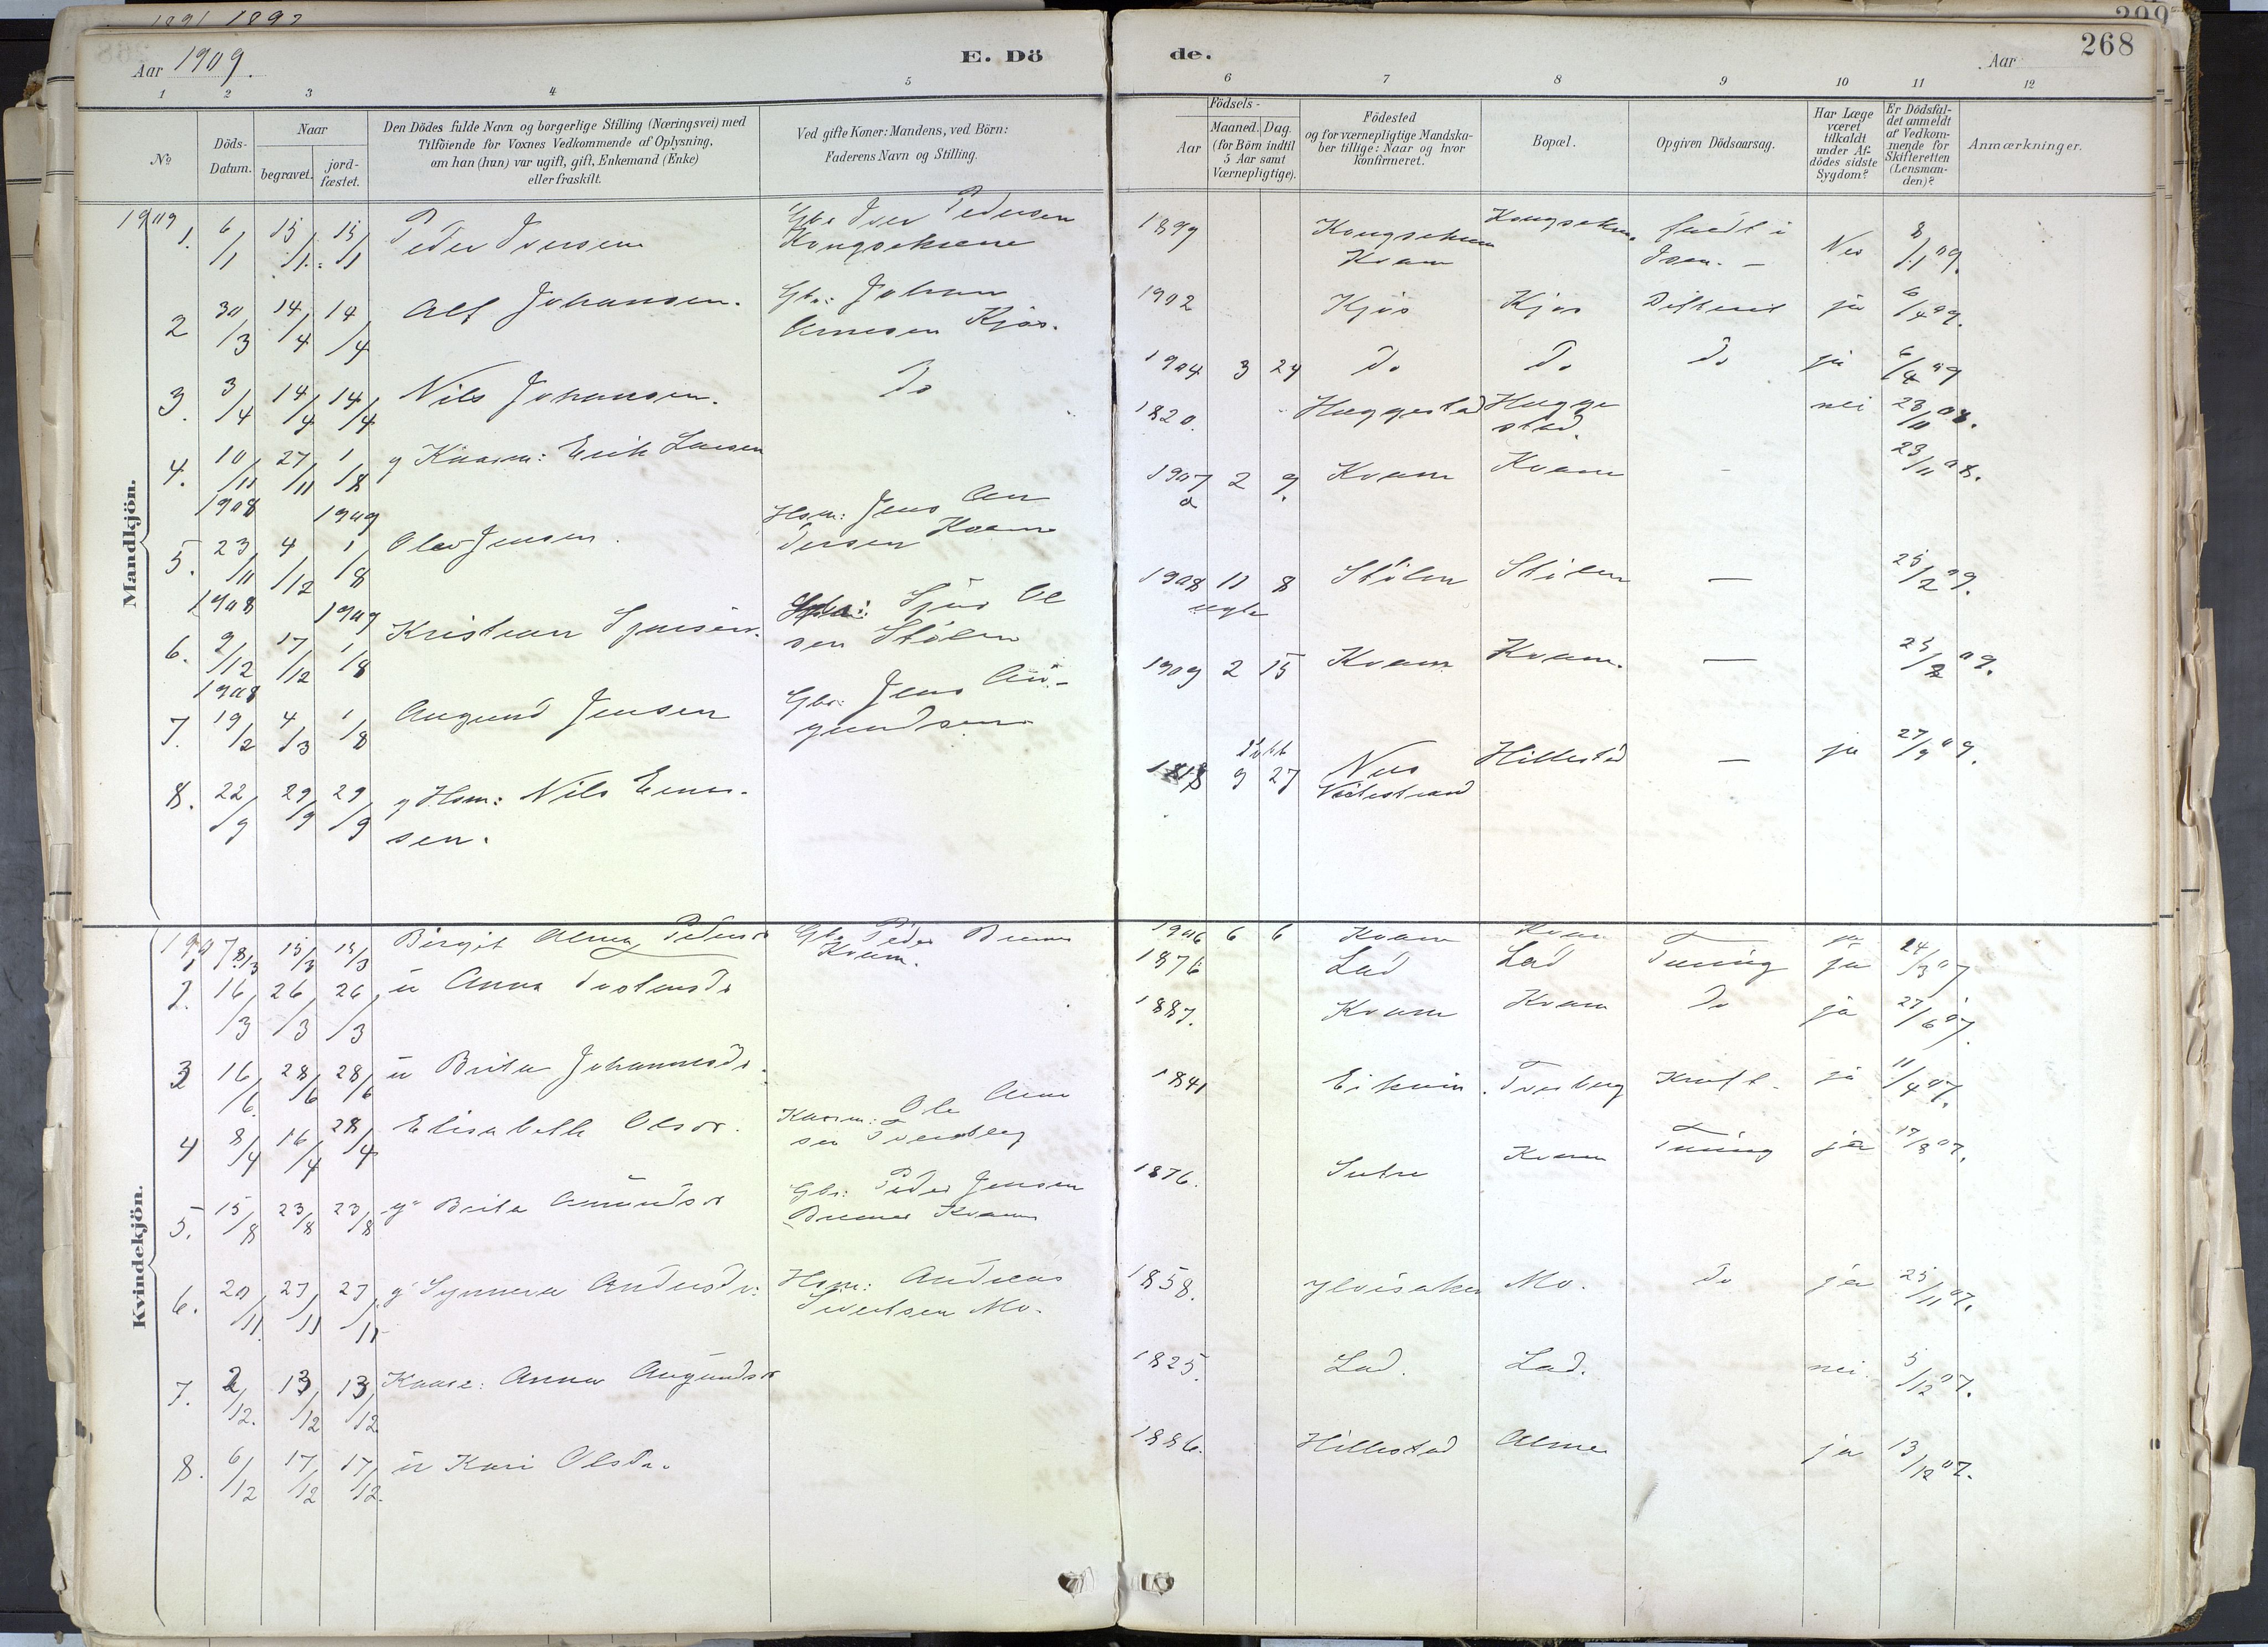 1891 1892
299
268
Aar 1909.
E. Dö
de.
Aar
1 2 3 4 5 6 7 8 9 10 11 12
No
Döds-
Datum.
Naar
begravet.
jord-
fæstet.
Den Dödes fulde Navn og borgerlige Stilling (Næringsvei) med
Tilföiende for Voxnes Vedkommende af Oplysning,
om han (hun) var ugift, gift, Enkemand (Enke)
eller fraskilt.
Ved gifte Koner: Mandens, ved Börn:
Faderens Navn og Stilling.
Födsels-
Aar
Maaned. Dag.
(for Börn indtil
5 Aar samt
Værnepligtige).
Födested
og for værnepligtige Mandska-
ber tillige: Naar og hvor
konfirmeret.
Bopæl.
Opgiven Dödsaarsag.
Har Læge
været
tilkaldt
under Af-
dödes sidste
Sygdom?
Er Dödsfal-
det anmeldt
af Vedkom-
mende for
Skifteretten
(Lensman-
den)?
Anmærkninger.
Mandkjön.
1909
1. 6/1 15/1 15/1 Peder Iversen Gbr Iver Pedersen 1899 Kvam 8/1 09.
2 30/3 14/4 14/4 Alf Johansen. Gbr: Johan Arnesen Kjøs. 1902 Kjøs Kjøs ja 6/4 09.
3. 3/4 14/4 14/4 Nils Johansen. Do 1904 3 24 Do Do Do ja 6/4 09
4. 10/11 1908 27/11 1/8 1909 g Kaarm: Erik Larsen 1820. Huggestad Hugge stad. nei 23/11 08.
5. 23/11 1908 4/12 1/8 1909 Olav Jensen. Hsm: Jens An dersen Kvam 1907 2 9. Kvam Kvam 23/11 08.
6. 9/12 1908 17/12 1/8 Kristian Sjursen. Sjur Ol sen Stølen 1908 11 8 Stølen Stølen — 25/2 09.
ægte
7. 19/2 4/3 1/8 Augund Jensen Gbr: Jens Au- gundsen 1909 2 15 Kvam Kvam. — 25/2 09.
8. 22/9 29/9 29/9 g Hsm: Nils sen. 1818 9 27 Nes Hillestad — ja 27/9 09.
Kvindekjön.
1907
1 8/3 15/3 15/3 Birgit Alma Pedersd Gbr Peder Kvam. 1906 6 6 Kvam Kvam
2. 16/3 26/3 26/3 u Anna 1876 Lad Lad Tæring ja 24/3 07
3 16/6. 28/6 28/6 u Brita Johannesdr. 1887. Kvam Kvam Do ja 27/6 07.
4 8/4 16/4 28/4 Elisabeth Olsdr. Kaarm: Ole Arne sen 1841 Kræft. ja 11/4 07.
5. 15/8 23/8 23/8 g Brita Amundsdr Gbr: Peder Jensen Kvam 1876. Kvam Tæring ja 17/8 07.
6. 20/11. 27/11 27/11 g Synneva Andersdr: Hsm: Andreas Sivertsen Mo. 1858. Ylvisaker Mo. Do ja 25/11 07.
7. 2/12. 13/12 13/12 Kaare: Anna Augundsdr 1825. Lad. Lad. nei. 5/12 07.
8. 6/12 17/12 17/12. u Kari Olsdr. 1886. Hillestad Alme ja 13/12 07.